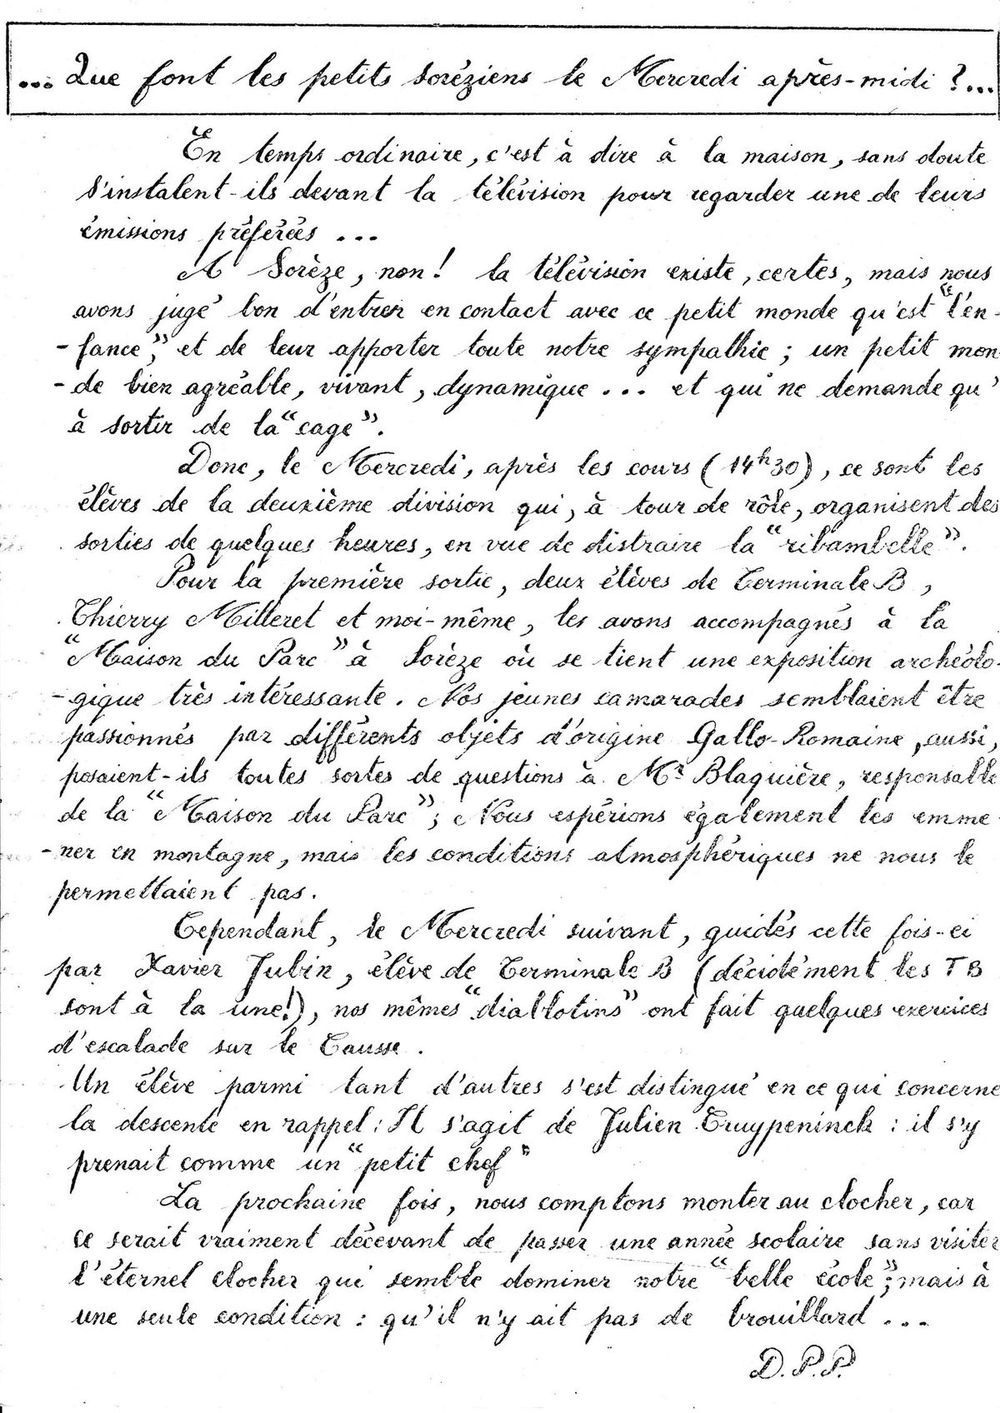 ... Que font les petits soréziens le Mercredi après-midi ?...
En temps ordinaire, c'est à dire à la maison, sans doute
s'instalent-ils devant la télévision pour regarder une de leurs
émissions préférées ...
A Sorèze, non! la télévision existe, certes, mais nous
avons jugé bon d'entrer en contact avec ce petit monde qu'est "l'en-
-fance", et de leur apporter toute notre sympathie ; un petit mon-
-de bien agréable, vivant, dynamique ... et qui ne demande qu'
à sortir de la "cage".
Donc, le Mercredi, après les cours (14h30), ce sont les
élèves de la deuxième division qui, à tour de rôle, organisent des
sorties de quelques heures, en vue de distraire la "ribambelle".
Pour la première sortie, deux élèves de Terminale B,
Thierry Milleret et moi-même, les avons accompagnés à la
"Maison du Parc" à Sorèze où se tient une exposition archéolo-
-gique très intéressante. Nos jeunes camarades semblaient être
passionnés par différents objets d'origine Gallo-Romaine, aussi,
posaient-ils toutes sortes de questions à Mr Blaquière, responsable
de la "Maison du Parc"; Nous espérions également les emme-
-ner en montagne, mais les conditions atmosphériques ne nous le
permettaient pas.
Cependant, le Mercredi suivant, guidés cette fois-ci
par Xavier Jubin, élève de Terminale B (décidément les TB
sont à la une!), nos mêmes "diablotins" ont fait quelques exercices
d'escalade sur le Causse.
Un élève parmi tant d'autres s'est distingué en ce qui concerne
la descente en rappel : Il s'agit de Julien Cruypeninck : il s'y
prenait comme un "petit chef"
La prochaine fois, nous comptons monter au clocher, car
ce serait vraiment décevant de passer une année scolaire sans visiter
l'éternel clocher qui semble dominer notre "belle école"; mais à
une seule condition : qu'il n'y ait pas de brouillard ...
D.P.P.